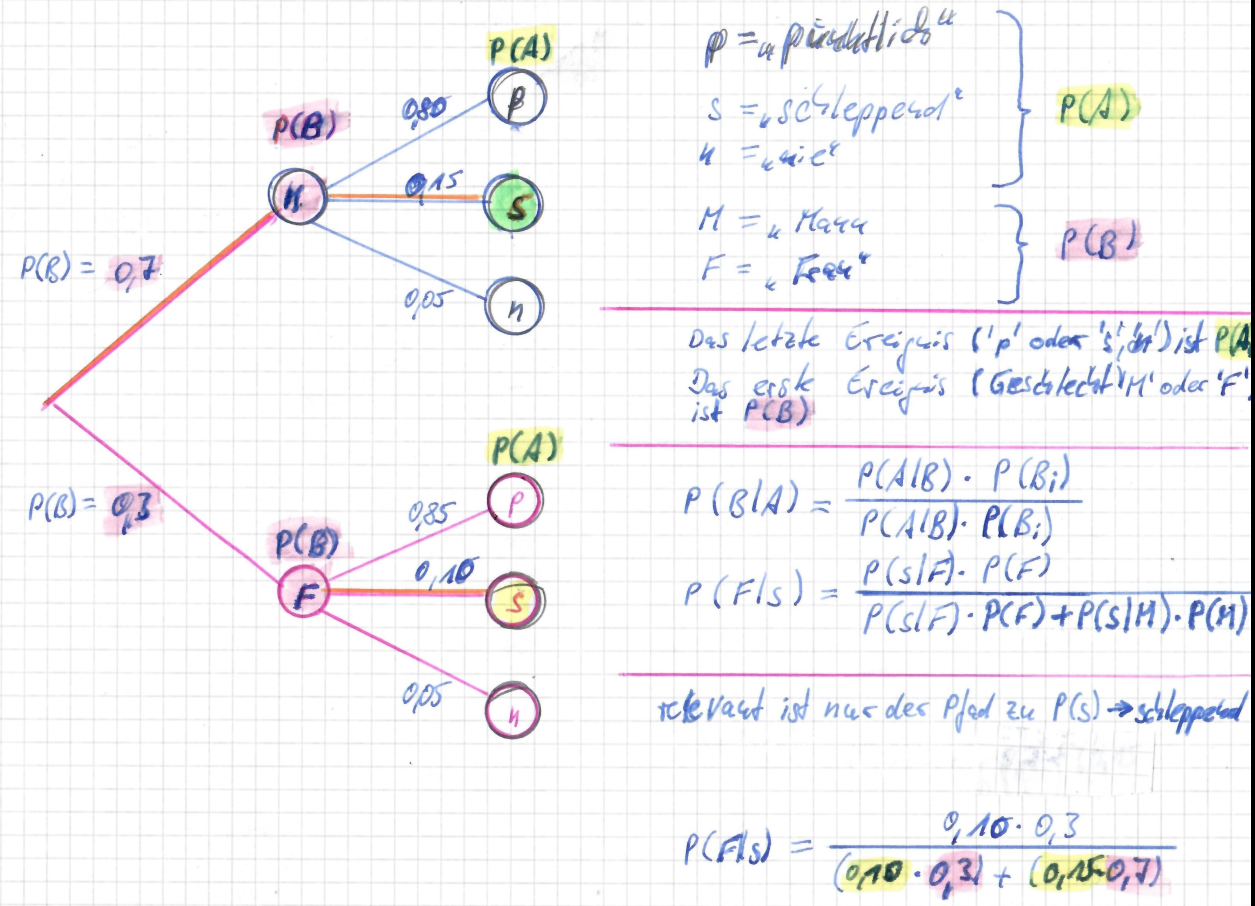 P(A)
P(B)
0,80
p
0,15
M
s
P(B) = 0,7
0,05
n
P(A)
P(B) = 0,3
0,85
P
P(B)
0,10
F
s
0,05
n
p = „pünktlich“
s = „schleppend“
n = „nie“
P(A)
M = „Mann
F = „Frau“
P(B)
Das letzte Ereignis ('p' oder 's', 'n') ist P(A
Das erste Ereignis (Geschlecht) 'M' oder 'F'
ist P(B)
P(B|A) = P(A|B) · P(Bi)
P(A|B) · P(Bi)
P(F|s) = P(s|F) · P(F)
P(s|F) · P(F) + P(s|M) · P(M)
relevant ist nur der Pfad zu P(s) → schleppend
P(F|s) = 0,10 · 0,3
(0,10 · 0,3) + (0,15·0,7)